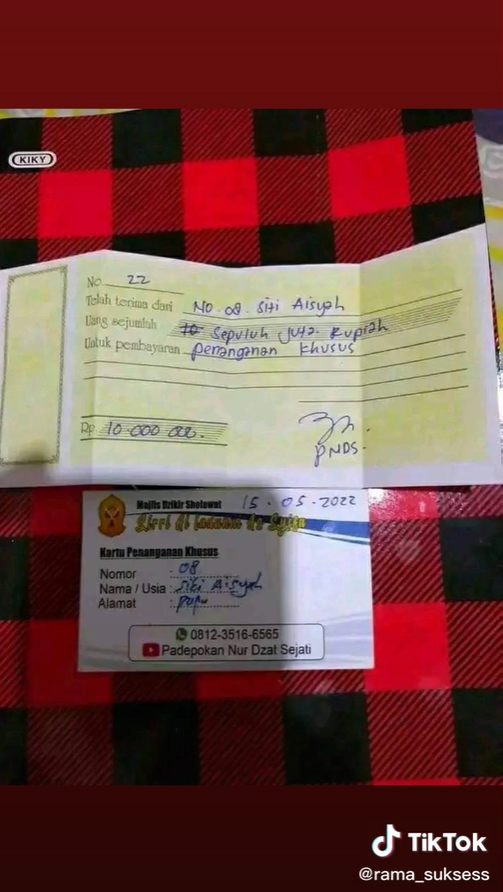 KIKY
No. 22
Telah terima dari NO. 08. Siti Aisyah
Uang sejumlah Sepuluh Juta Rupiah
Untuk pembayaran penanganan khusus
Rp 10.000
PNDS.
Majlis Dzikir Sholawat 15.05.2022
Kartu Penanganan Khusus
Nomor : 08
Nama / Usia : Siti Aisyah
Alamat :
0812-3516-6565
Padepokan Nur Dzat Sejati
TikTok
@rama_suksess